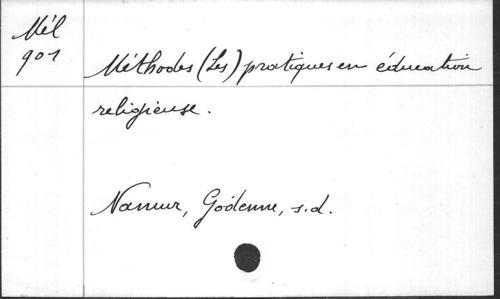 Mél
901
Méthodes (Les) pratiques en éducation
religieuse.
Namur, Godenne, s.d.